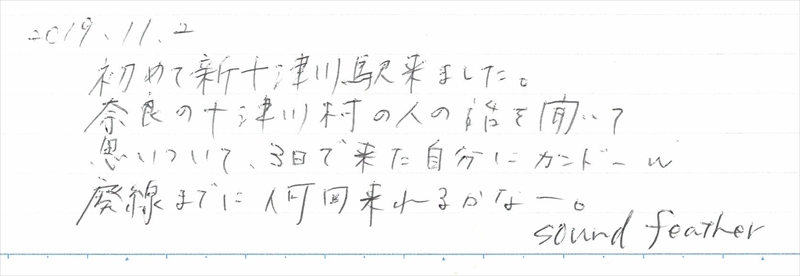 2019.11.2
初めて新十津川駅来ました。
奈良の十津川村の人の話を聞いて
思いついて、3日で来た自分にカンドーw
廃線までに何回来れるかなー。
sound feather